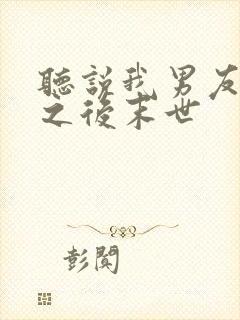 聽說我男友
之後末世
彭閱